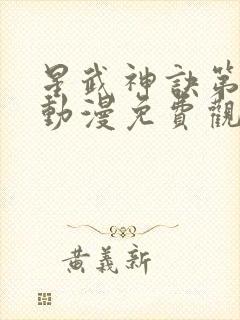 星武神訣第
動漫免費觀
黃義新